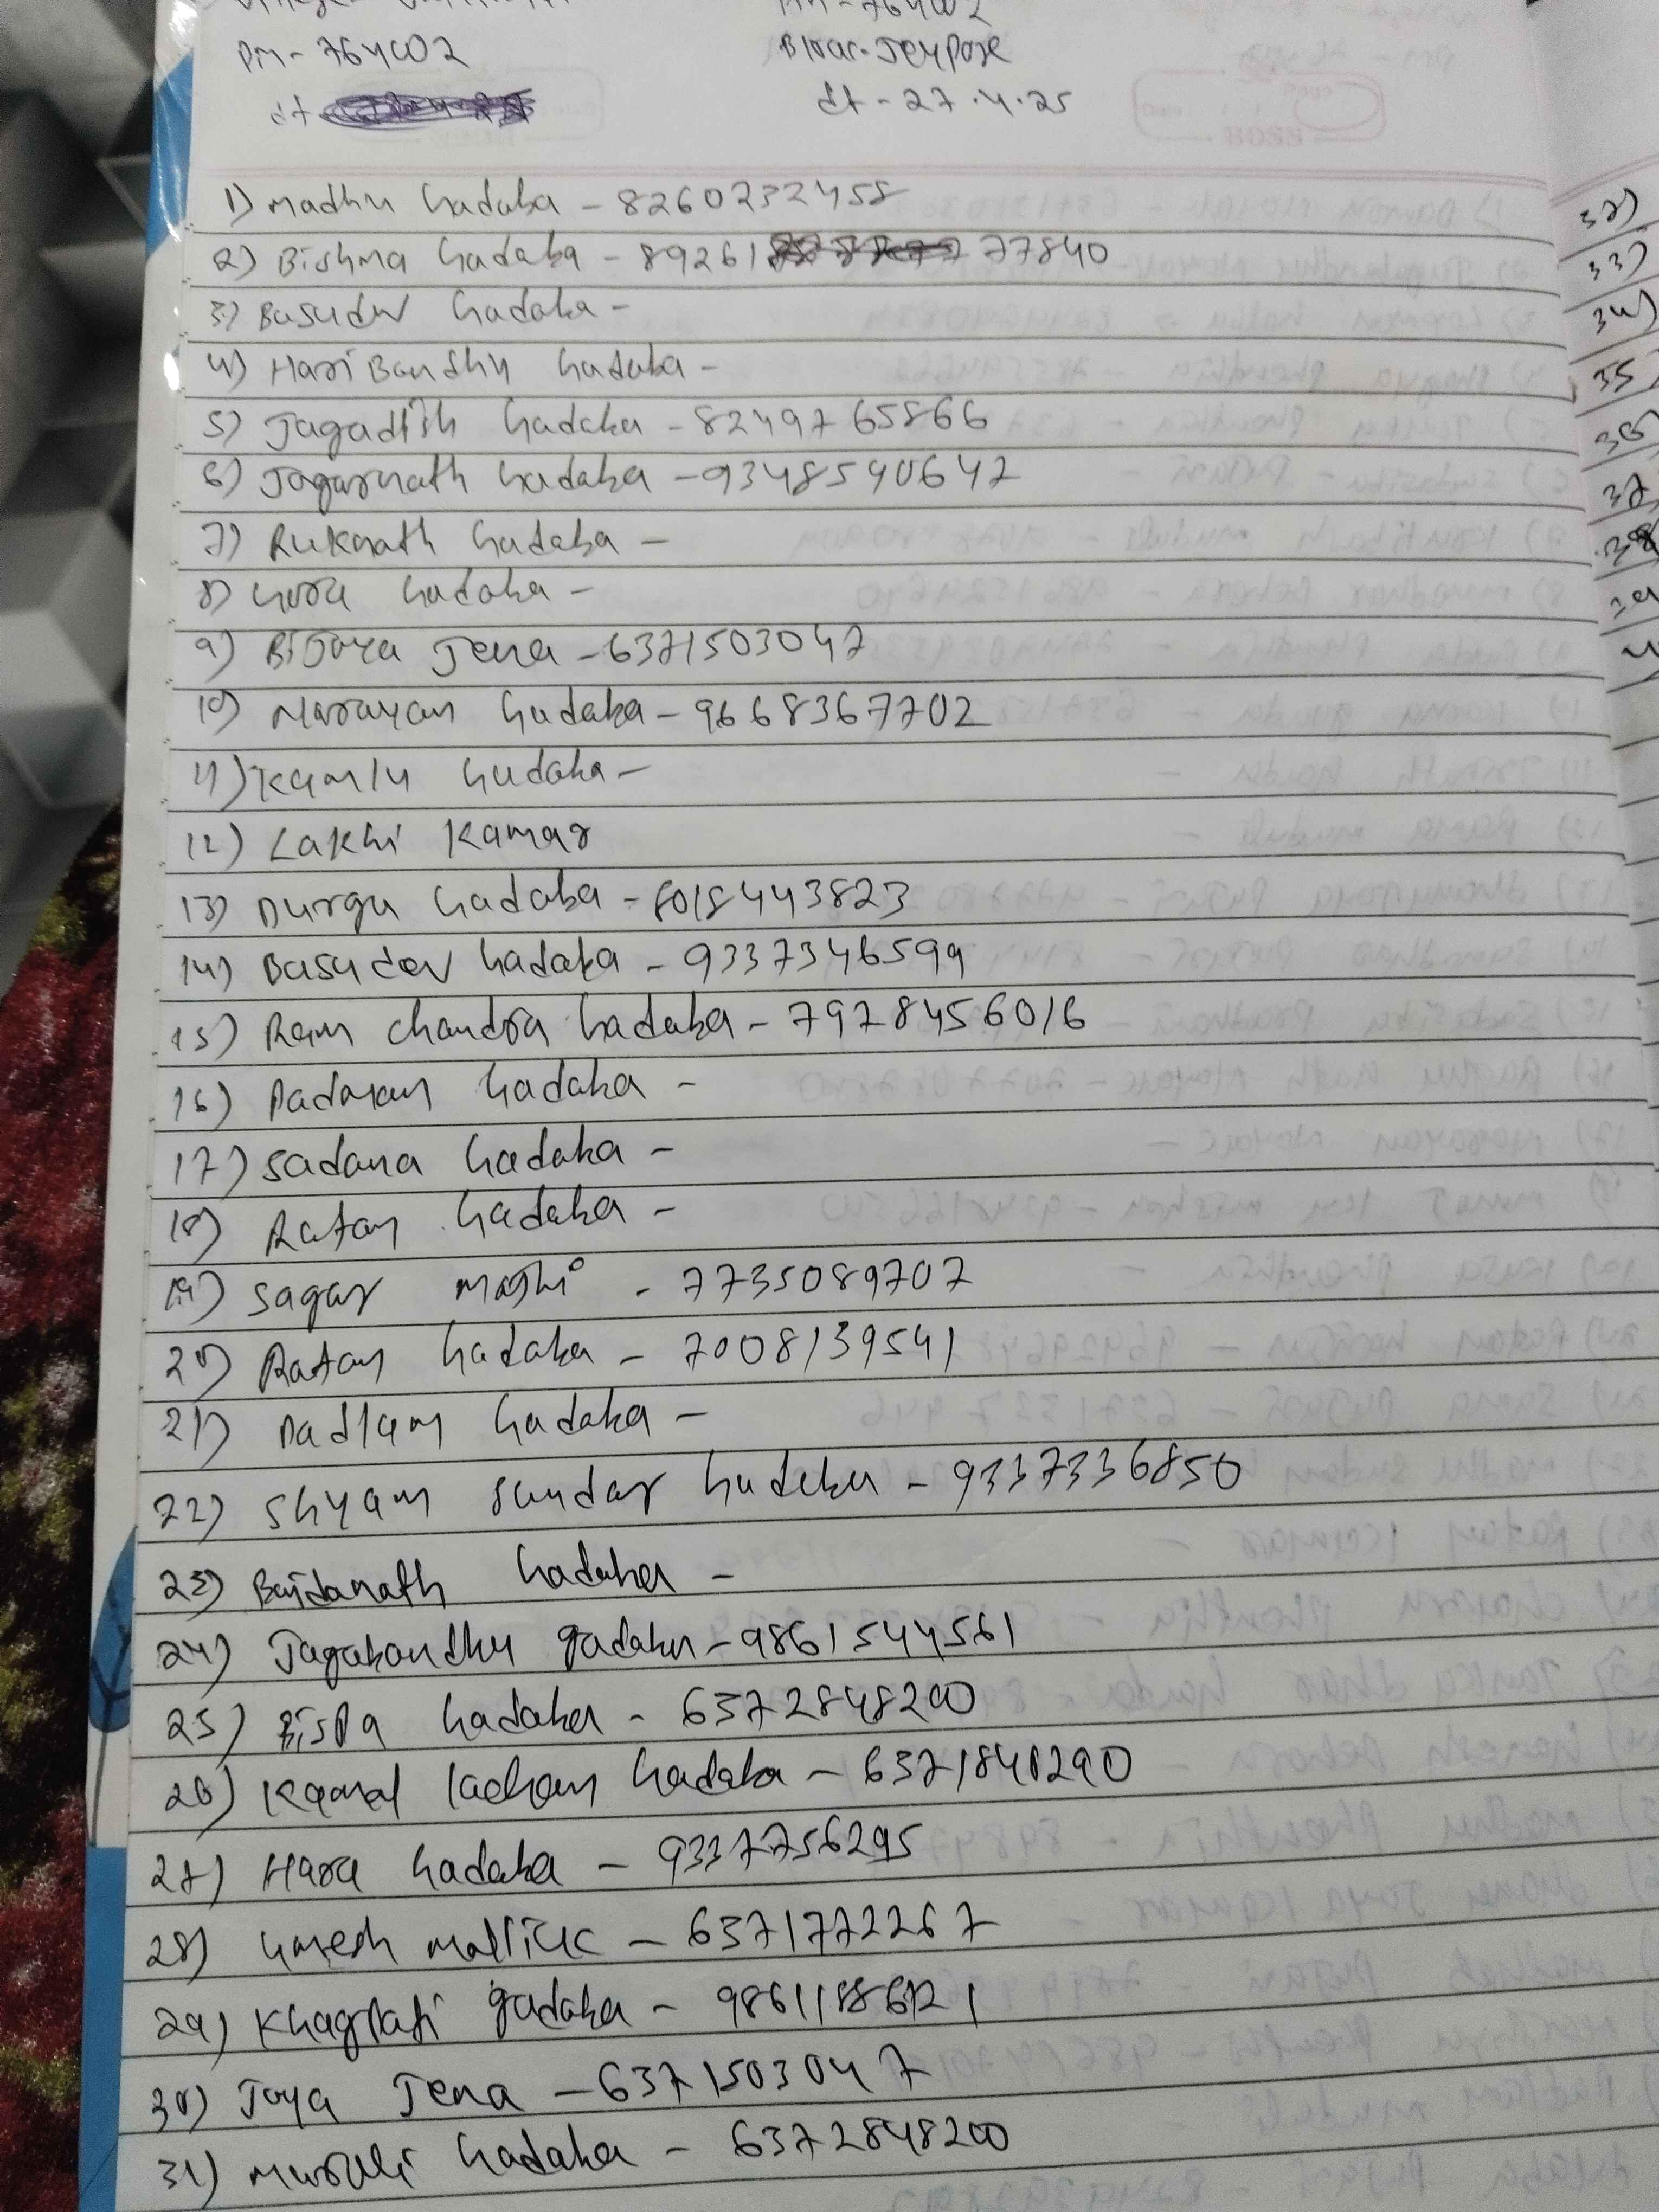 Pin - 764002
Pin - 764002
Block - Jeypore
dt
dt - 27.4.25
1) Madhu Gadaba - 8260232458
2) Bishma Gadaba - 89261 77840
3) Basudev Gadaba -
4) HariBandhu Gadaba -
5) Jagadish Gadaba - 8249765866
6) Jagarnath Gadaba - 9348540642
7) Ruknath Gadaba -
8) Gora Gadaba -
9) Bijaya Jena - 6371503047
10) Narayan Gadaba - 9668367702
11) Kamlu Gadaba -
12) Lakhi Kamar
13) Durga Gadaba - 8018443823
14) Basudev Gadaba - 9337346599
15) Ram Chandra Gadaba - 7978456016
16) Padman Gadaba -
17) Sadana Gadaba -
18) Ratan Gadaba -
19) Sagar Majhi - 7735089707
20) Ratan Gadaba - 7008139541
21) Padlam Gadaba -
22) Shyam Sundar Gadaba - 9337336850
23) Baidanath Gadaba -
24) Jagabandhu Gadaba - 9861544561
25) Gadaba - 6372848200
26) Kamal Lochan Gadaba - 6371840290
27) Hara Gadaba - 9337756295
28) Umesh Mallick - 6371772267
29) Khagpati Gadaba -
30) Joya Jena - 6371503047
31) Murali Gadaba - 6372848200
32)
33)
34)
35
36
37
38
39